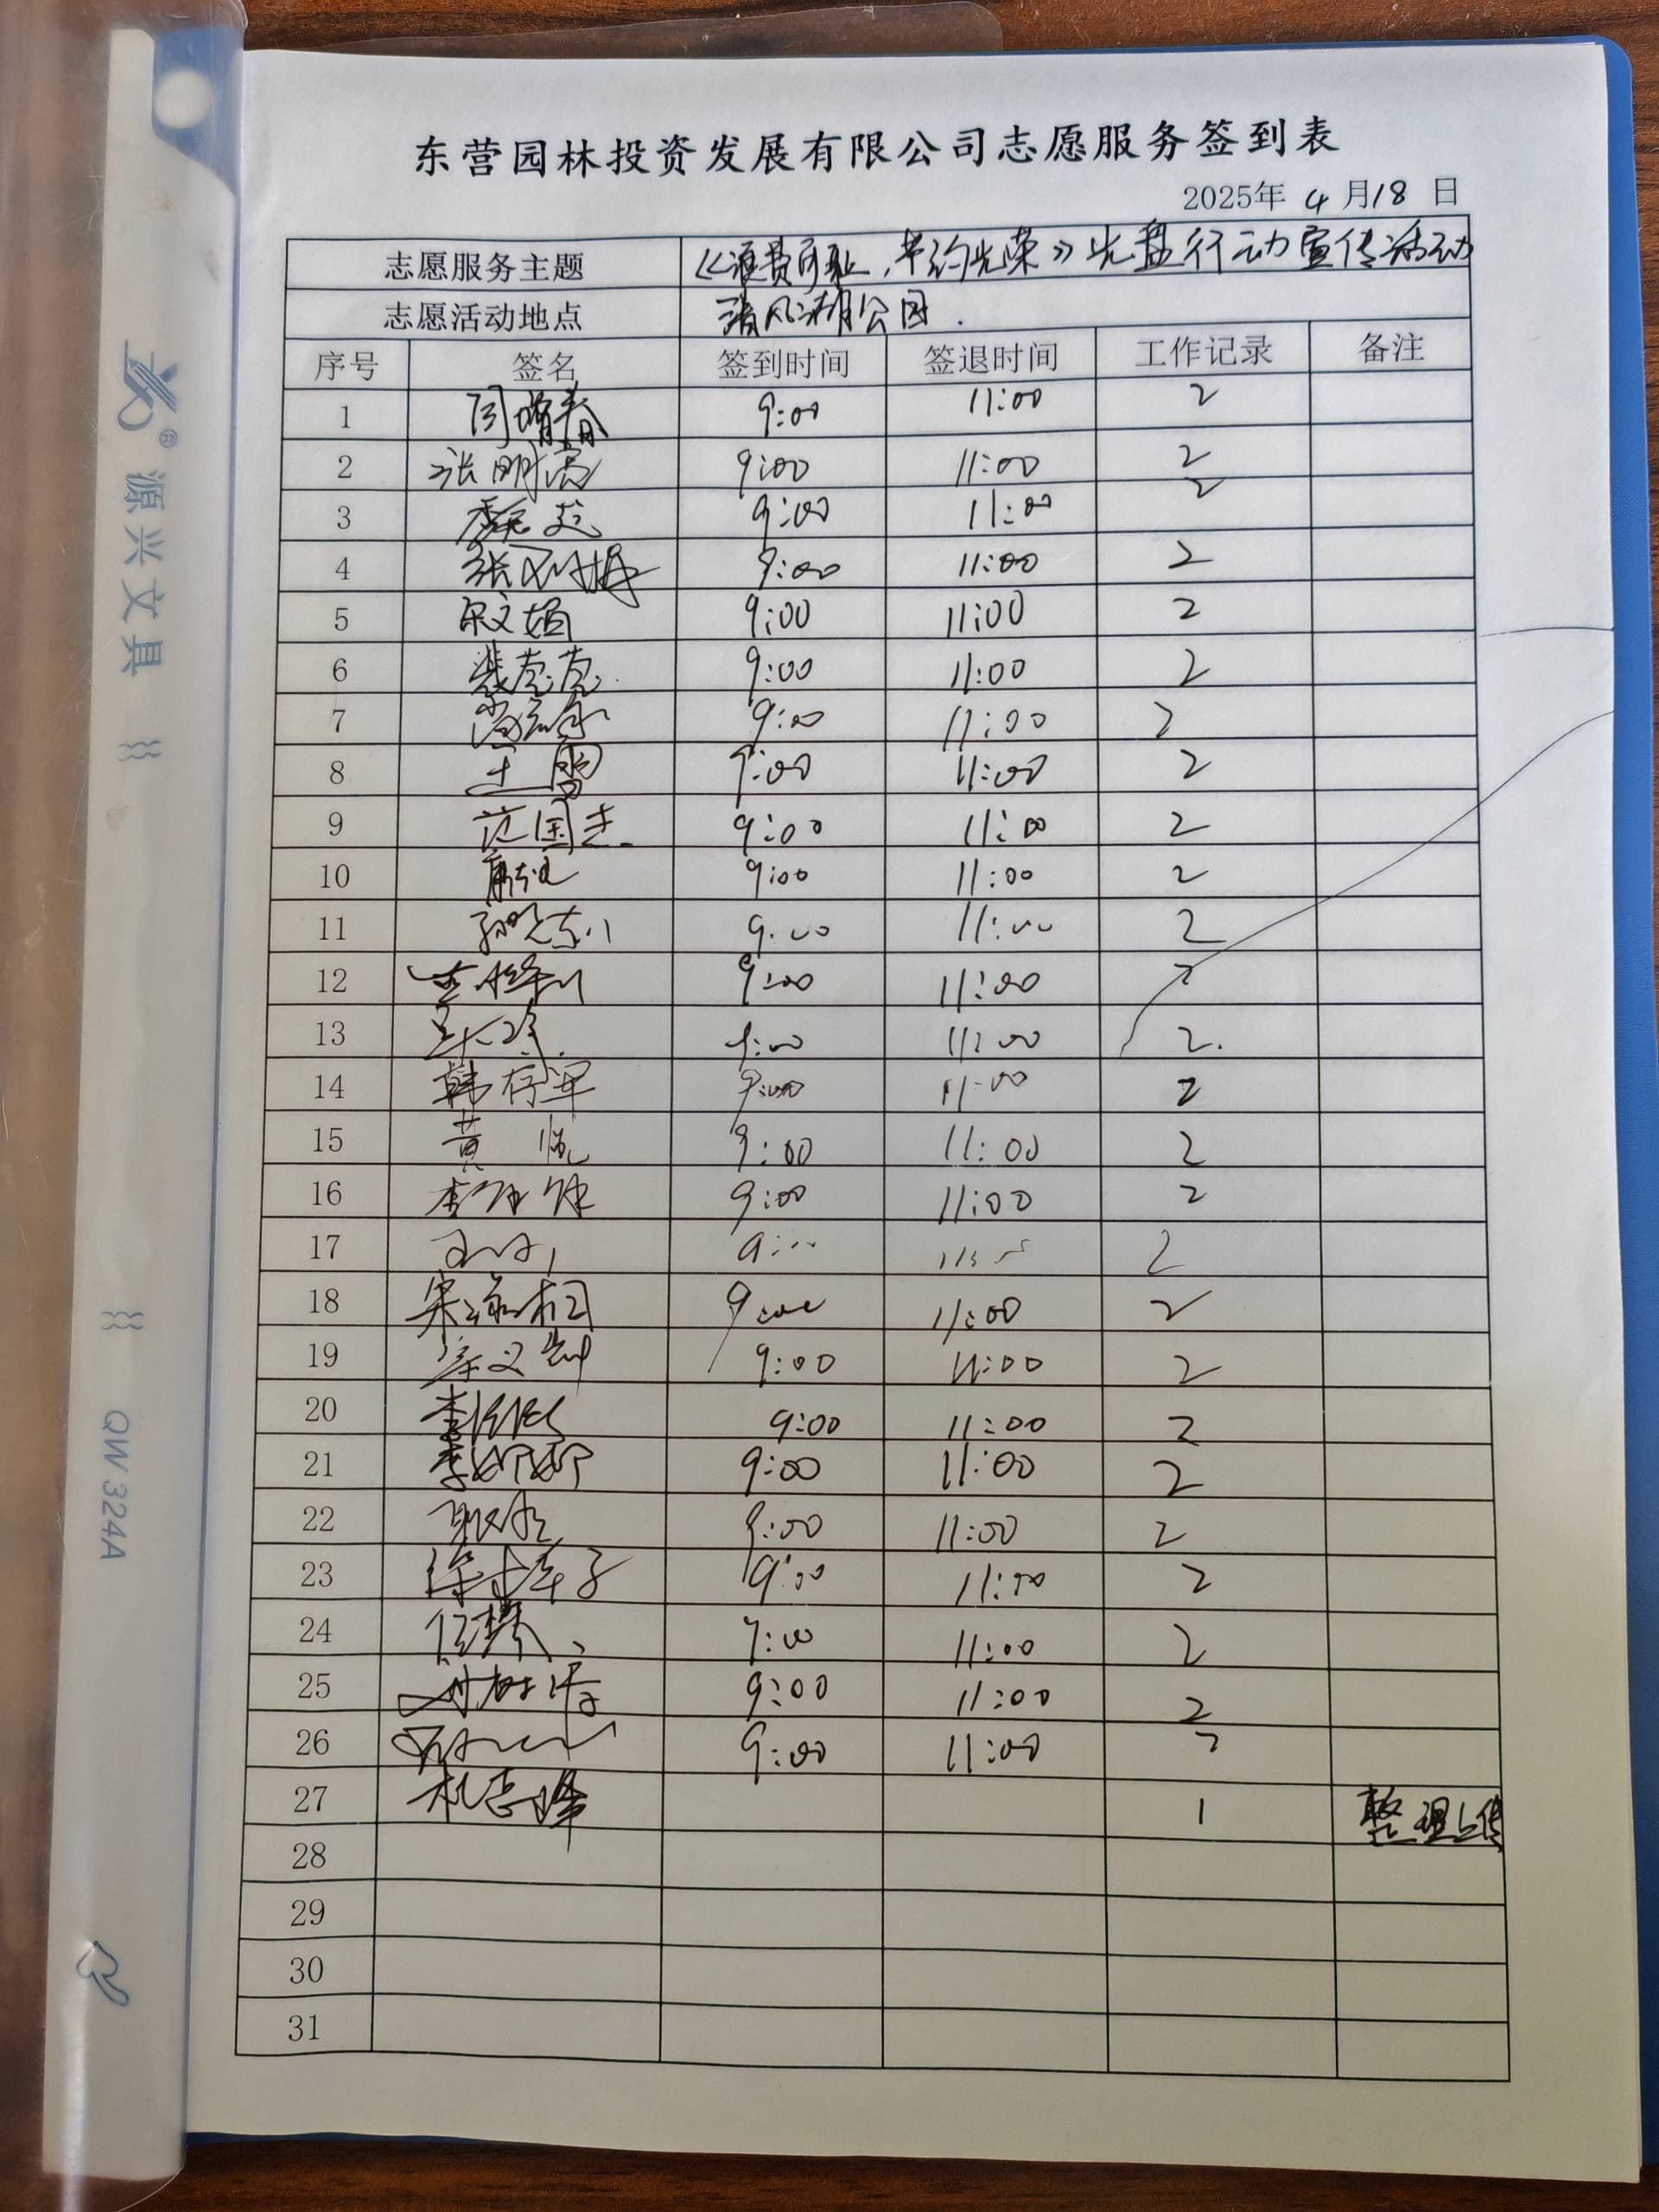 东营园林投资发展有限公司志愿服务签到表
2025年 4 月 18 日
志愿服务主题 《浪费可耻，节约光荣》光盘行动宣传活动
志愿活动地点 清风湖公园.
序号 签名 签到时间 签退时间 工作记录 备注
1 闫增春 9:00 11:00 2
2 张明亮 9:00 11:00 2
3 9:00 11:00 2
4 张 9:00 11:00 2
5 9:00 11:00 2
6 裴 9:00 11:00 2
7 9:00 11:00 2
8 王雪 9:00 11:00 2
9 范国圭 9:00 11:00 2
10 9:00 11:00 2
11 孙 9:00 11:00 2
12 9:00 11:00 2
13 9:00 11:00 2.
14 韩存军 9:00 11:00 2
15 黄 9:00 11:00 2
16 李 9:00 11:00 2
17 9:00 2
18 宋 9:00 11:00 2
19 9:00 11:00 2
20 李 9:00 11:00 2
21 李娜娜 9:00 11:00 2
22 9:00 11:00 2
23 徐 9:00 11:00 2
24 任 9:00 11:00 2
25 9:00 11:00 2
26 9:00 11:00 2
27 杜志峰 1 整理上传
28
29
30
31
源兴文具
QW324A